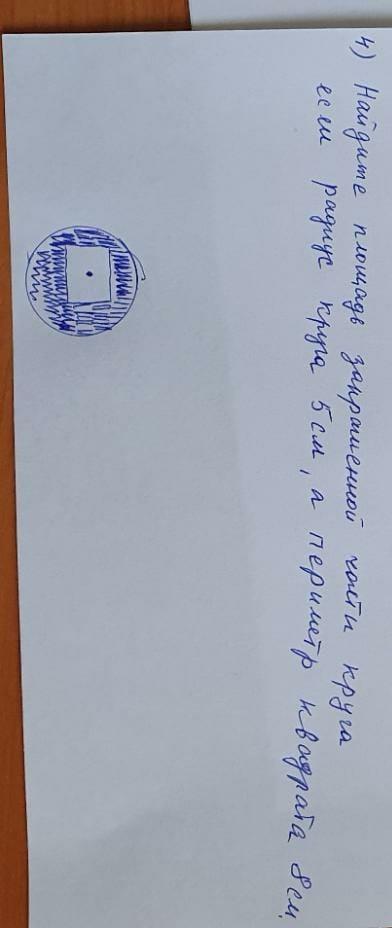 4) Найдите площадь закрашенной части круга
если радиус круга 5 см, а периметр квадрата 8 см.